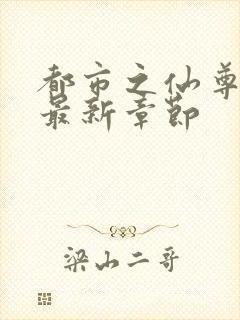 都市之仙尊
最新章节
梁山二哥